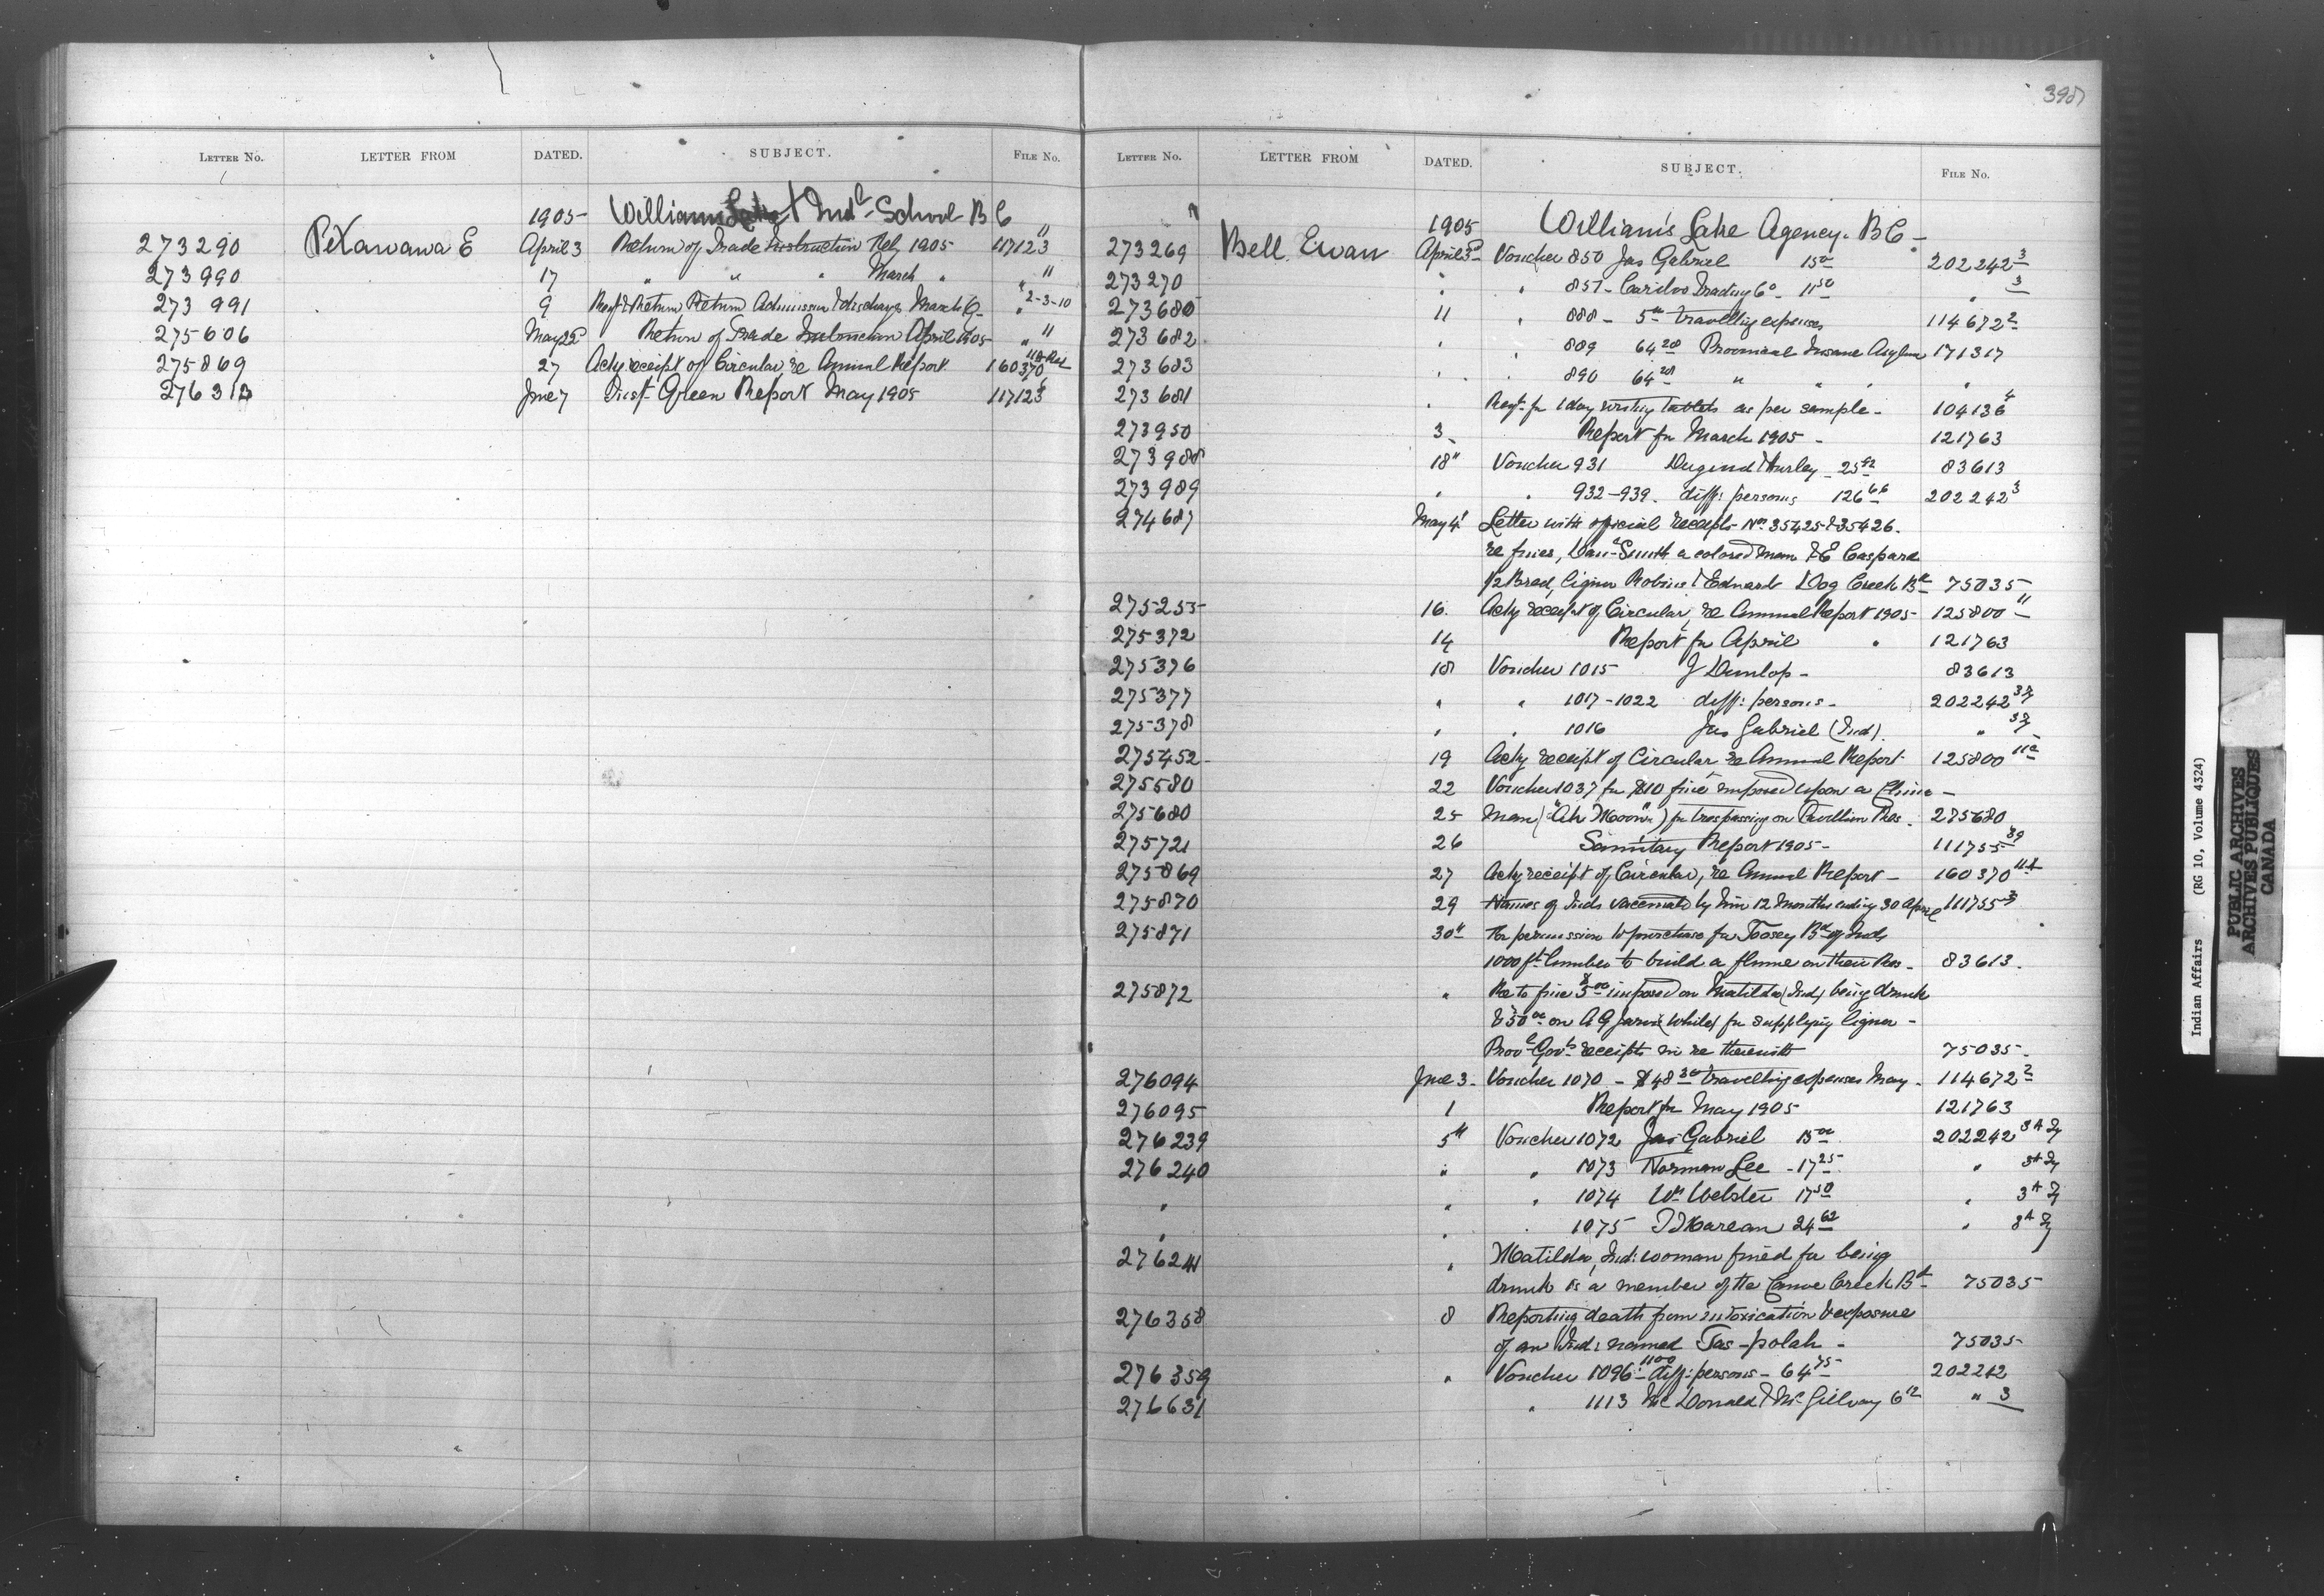 398
LETTER NO. LETTER FROM DATED. SUBJECT. FILE NO.
1905 Williams Lake Indl School BC
273290 E April 3 Return of Trade Instruction Feb 1905 117123 11
273990 17 " " " March " " 11
273991 9 Return Admission & discharge March " 2-3-10
275606 May 22 Return of Trade Instruction April 1905 " 11
275869 27 Ackg receipt of Circular, re Annual Report 160370
276313 June 7 Inspt Green Report May 1905 117123
LETTER NO. LETTER FROM DATED. SUBJECT. FILE NO.
1905 William's Lake Agency. BC
273269 Bell Ewan April 3 Voucher 850 Jas Gabriel 15 00 202242 3
273270 " " 851 - Cariboo Trading Co - 11 50 " 3
273680 11 " 888 - 5 00 travelling expenses 114672 2
273682 " " 889 64 28 Provincial Insane Asylum 171317
273683 " " 890 64 28 " " " "
273681 " Reqt for 1 doz writing tablets as per sample - 104136 4
273950 3 Report for March 1905 - 121763
273988 18" Voucher 931 & Hurley 25 42 83613
273989 " " 932-939. diff: persons 126 66 202242 3
274687 May 4 Letter with official receipts Nos 35425 & 35426.
re fines, Danl Smith a colored man & E Caspard
1/2 Breed, liquor & Edward Dog Creek Bd 75035
275255 16. Ackg receipt of Circular, re Annual Report 1905 - 125800 11
275372 14 Report for April " 121763
275376 18 Voucher 1015 J Dunlop - 83613
275377 " " 1017-1022 diff: persons - 202242 3
275378 " " 1016 Jas Gabriel (Ind). " 3
275452 19 Ackg receipt of Circular re Annual Report 125800 11a
275580 22 Voucher 1037 for $10 fine imposed upon a China -
275680 25 Man ("Ah Moon") for trespassing on Pavillion Res. 275680
275721 26 Sanitary Report 1905 - 111755
275869 27 Ackg receipt of Circular, re Annual Report - 160370
275870 29 Names of Inds vaccinated by him 12 Months ending 30 April 111755 3
275871 30" For permission to purchase for Toosey Bd of Inds
1000 ft lumber to build a flume on their Res - 83613.
275872 " Re to fine $5 00 imposed on Matilda (Ind) being drunk
& 50 00 on A G Jarvis (white) for supplying liquor -
Provl Govt receipts in re therewith 75035.
276094 June 3 - Voucher 1070 - $48 30 travelling expenses May - 114672 2
276095 1 Report for May 1905 121763
276239 5" Voucher 1072 Jas Gabriel 15 00 202242 3A
276240 " " 1073 Norman Lee - 17 25 " 3A
" " " 1074 Wm Webster 17 50 " 3A
" " 1075 24 62 " 3A
276241 " Matilda, Ind: woman fined for being
drunk is a member of the Canoe Creek Bd - 75035
276358 8 Reporting death from intoxication & exposure
of an Ind: named Tas-polah - 75035
276359 " Voucher 1096-1100 diff: persons - 64 75 202242
276631 " 1113 Mc Donald & Mc Gillvary 6 12 " 3
Indian Affairs (RG 10, Volume 4324)
PUBLIC ARCHIVES
ARCHIVES PUBLIQUES
CANADA